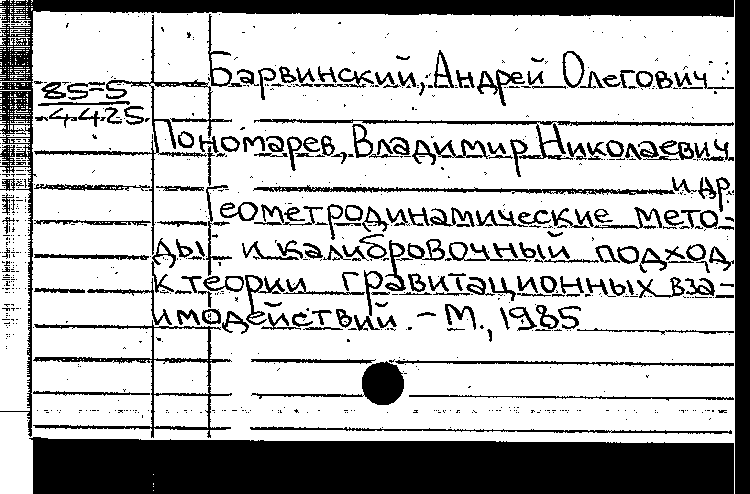 Барвинский, Андрей Олегович
85-5
4425
Пономарев, Владимир Николаевич
и др.
Геометродинамические мето-
ды и калибровочный подход
к теории гравитационных вза-
имодействий. – М., 1985